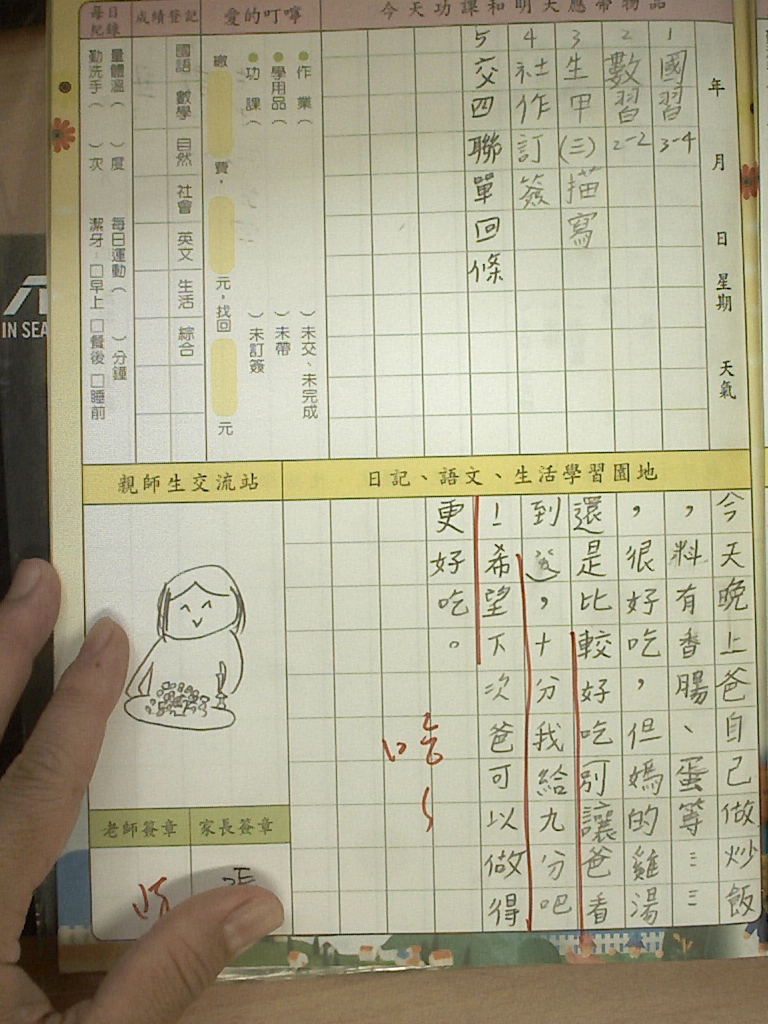 今天功課和明天應帶物品
年 月 日 星期 天氣
1 國習 3-4
2 數習 2-2
3 生甲(三)描寫
4 社作訂簽
5 交四聯單回條
愛的叮嚀
●作業( )未交、未完成
●學用品( )未帶
●功課( )未訂簽
繳 費, 元,找回 元
成績登記
國語 數學 自然 社會 英文 生活 綜合
每日紀錄
量體溫( )度 每日運動( )分鐘
勤洗手( )次 潔牙:□早上 □餐後 □睡前
日記、語文、生活學習園地
今天晚上爸自己做炒飯
,料有香腸、蛋等⋯⋯
,很好吃,但媽的雞湯
還是比較好吃別讓爸看
到 ,十分我給九分吧
!希望下次爸可以做得
更好吃。
哈
親師生交流站
家長簽章
老師簽章
IN SEA